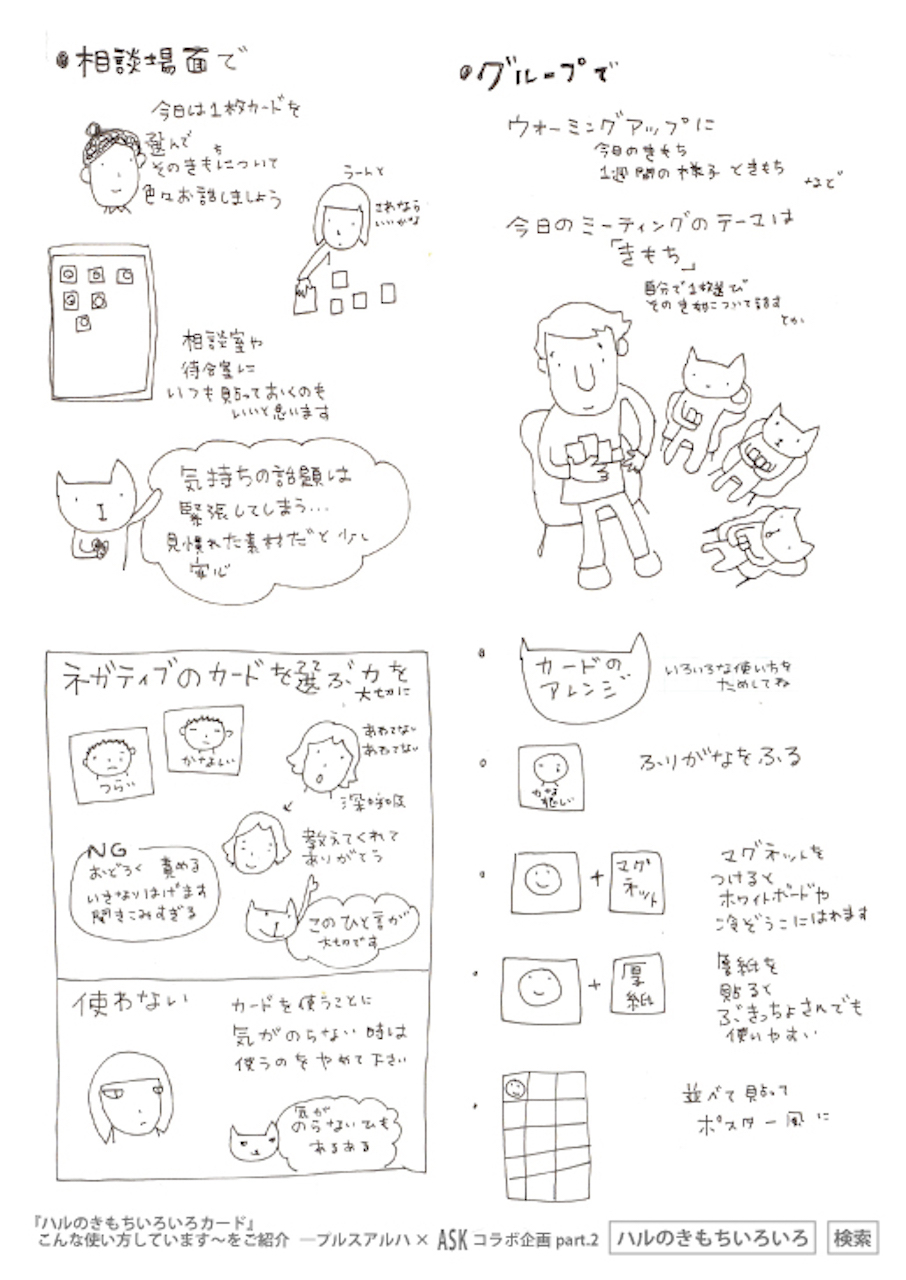 相談場面で
今日は1枚カードを
選んで
そのきもちについて
色々お話しましよう
うーんと
これなら
いいかな
相談室や
待合室に
いつも貼っておくのも
いいと思います
気持ちの話題は
緊張してしまう…
見慣れた素材だと少し
安心
グループで
ウォーミングアップに
今日のきもち
1週間の様子ときもち
など
今日のミーティングのテーマは
「きもち」
自分で1枚選び
その気持について話す
とか
ネガティブのカードを選ぶ力を
大切に
つらい
かなしい
あわてない
あわてない
深呼吸
教えてくれて
ありがとう
NG
おどろく 責める
いきなりはげます
聞きこみすぎる
このひと言が
大切です
使わない
カードを使うことに
気がのらない時は
使うのをやめて下さい
気が
のらない日も
あるある
カードの
アレンジ
いろいろな使い方を
ためしてね
かな
悲しい
ふりがなをふる
+
マグ
ネット
マグネットを
つけると
ホワイトボードや
冷ぞうこにはれます
+
厚
紙
厚紙を
貼ると
ぶきっちょさんでも
使いやすい
並べて貼って
ポスター風に
『ハルのきもちいろいろカード』
こんな使い方しています〜をご紹介 ―プルスアルハ × ASK コラボ企画 part.2 ハルのきもちいろいろ 検索